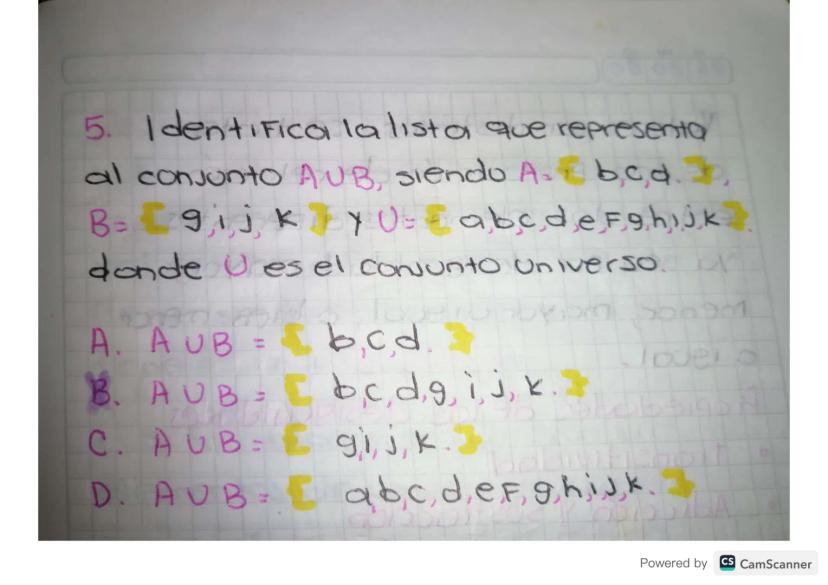 5. Identifica la lista que representa
al conjunto A∪B, siendo A={ b,c,d. },
B={ g,i,j, k } y U={ a,b,c,d,e,f,g,h,i,j,k }.
donde U es el conjunto universo.
A. A ∪ B = { b,c,d. }
B. A ∪ B = { b,c,d,g,i,j,k. }
C. A ∪ B = { g,i,j,k. }
D. A ∪ B = { a,b,c,d,e,f,g,h,i,j,k. }
Powered by CS CamScanner